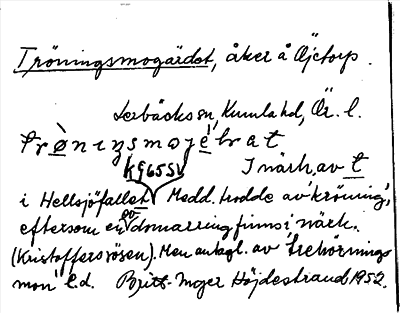 Tröningsmogärdet, åker å Öjetorp.
Lerbäcks sn, Kumla hd, Ör. l.
trò̱nιŋsmojė̱rat
KG65SV
I närh. av t
i Hellsjöfallet Medd. trodde av 'kröning',
eftersom en domarring finns i närh.
(Kristoffersrösen). Men antagl. av 'trehörnings
mon' e.d. Britt-Inger Höjdestrand 1952.